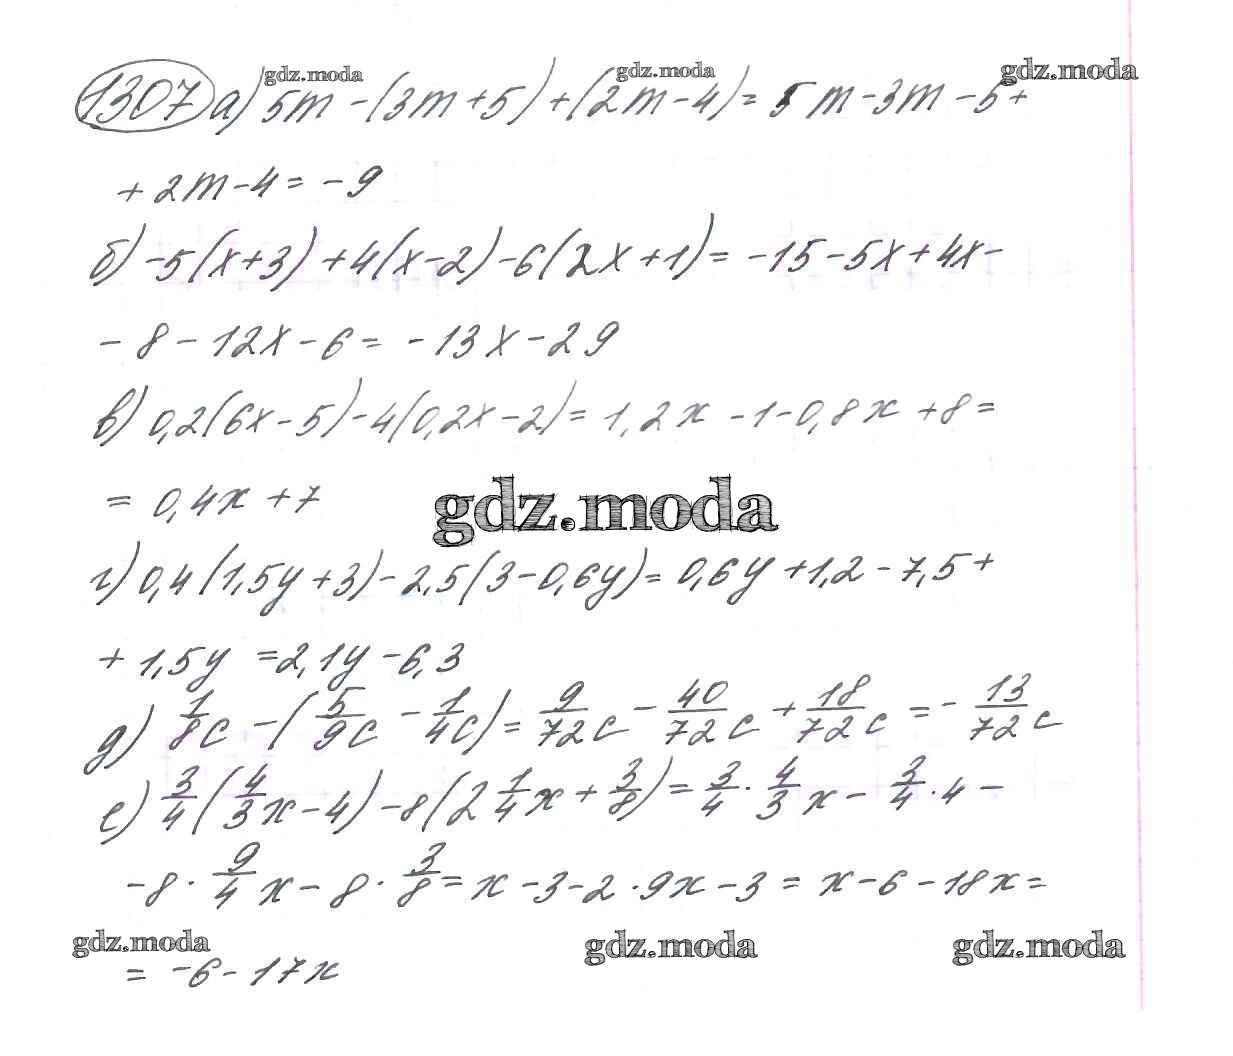 1307 а) 5m - (3m + 5) + (2m - 4) = 5m - 3m - 5 +
+ 2m - 4 = -9
б) -5(x+3) + 4(x-2) - 6(2x+1) = -15 - 5x + 4x -
- 8 - 12x - 6 = -13x - 29
в) 0,2(6x - 5) - 4(0,2x - 2) = 1,2x - 1 - 0,8x + 8 =
= 0,4x + 7
gdz.moda
г) 0,4(1,5y + 3) - 2,5(3 - 0,6y) = 0,6y + 1,2 - 7,5 +
+ 1,5y = 2,1y - 6,3
д) 1/8c - (5/9c - 1/4c) = 9/72c - 40/72c + 18/72c = - 13/72c
е) 3/4(4/3x - 4) - 8(2 1/4x + 3/8) = 3/4 · 4/3x - 3/4 · 4 -
- 8 · 9/4x - 8 · 3/8 = x - 3 - 2 · 9x - 3 = x - 6 - 18x =
= -6 - 17x
gdz.moda gdz.moda gdz.moda
gdz.moda gdz.moda gdz.moda